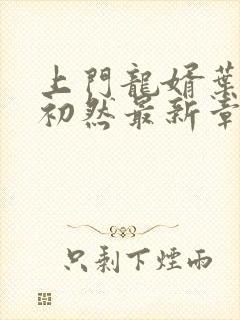 上門龍婿葉
初然最新章
只剩下煙雨